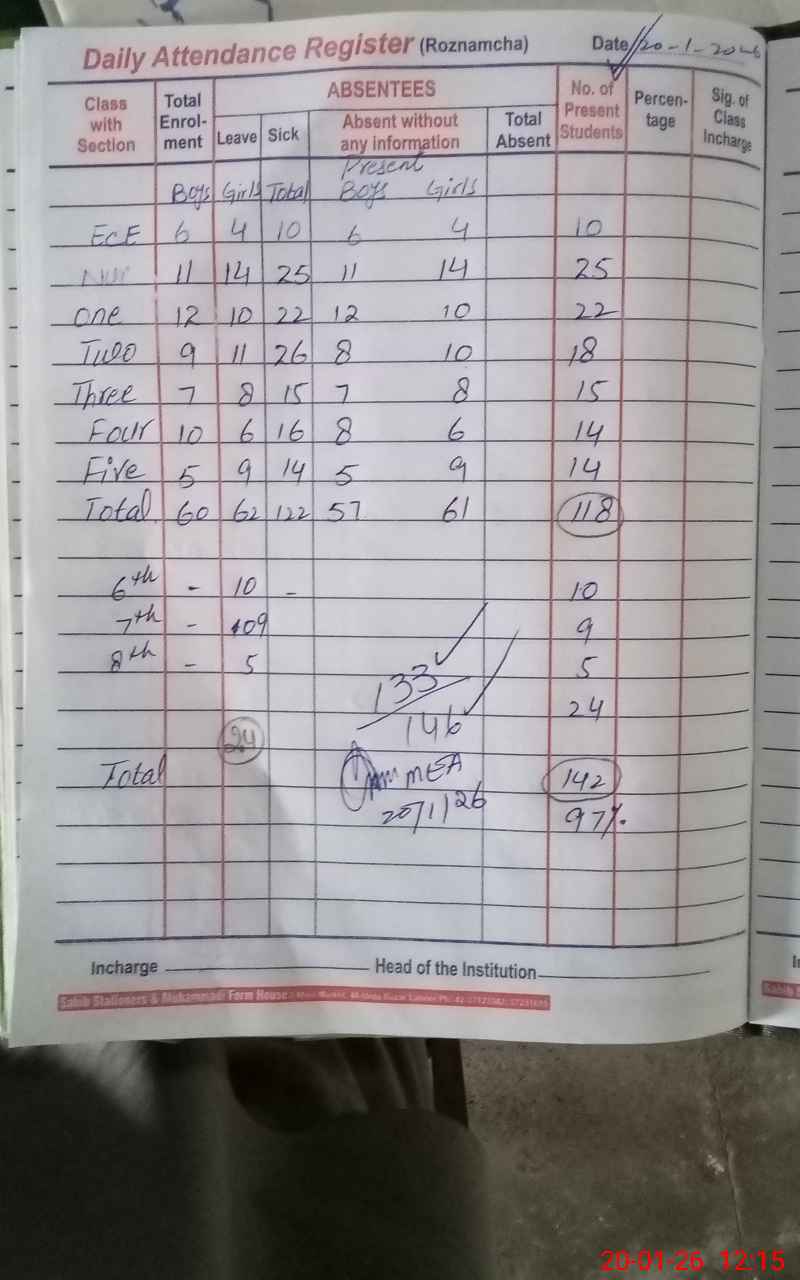 Daily Attendance Register (Roznamcha) Date 20-1-2026
Class with Section Total Enrol-ment ABSENTEES No. of Present Students Percen-tage Sig. of Class Incharge
Leave Sick Absent without any information Total Absent
Present
Boys Girls Total Boys Girls
ECE 6 4 10 6 4 10
Nur 11 14 25 11 14 25
One 12 10 22 12 10 22
Two 9 11 26 8 10 18
Three 7 8 15 7 8 15
Four 10 6 16 8 6 14
Five 5 9 14 5 9 14
Total 60 62 122 57 61 118
6th - 10 - 10
7th - 09 9
8th - 5 5
133 24
146
24
Total MEA 142
20/1/26 97%.
Incharge Head of the Institution
Sabib Stationers & Muhammadi Form House
20-01-26 12:15